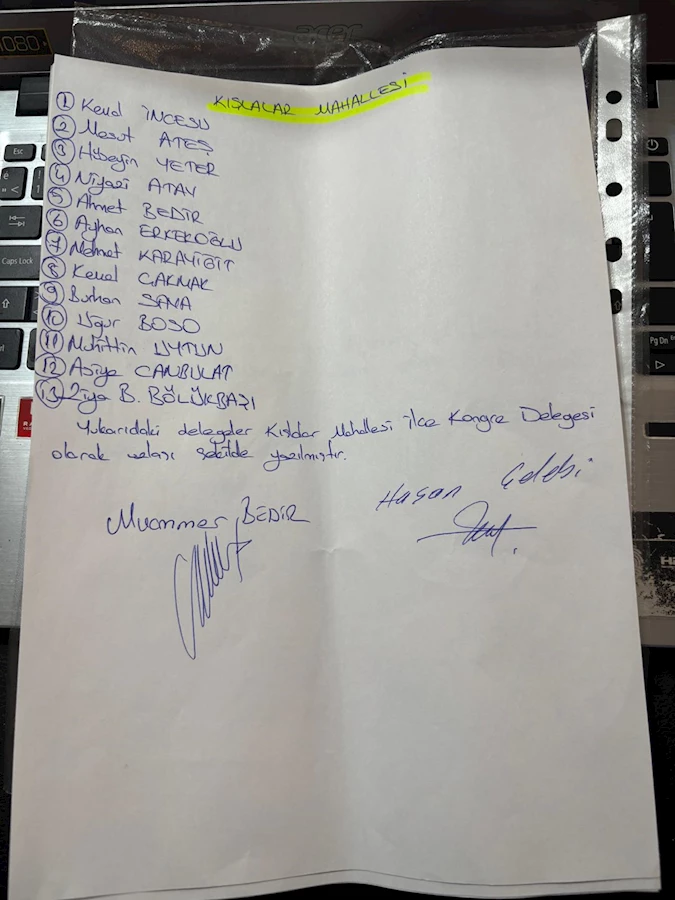 KIŞLALAR MAHALLESİ
1 Kemal İNCESU
2 Mesut ATEŞ
3 Hüseyin YETER
4 Niyazi ATAY
5 Ahmet BEDİR
6 Ayhan ERKEKOĞLU
7 Mehmet KARAYİĞİT
8 Kemal ÇAKMAK
9 Burhan SAVA
10 Uğur BOSO
11 Muhittin UYTUN
12 Asiye CANBULAT
13 Ziya B. BÖLÜKBAŞI
Yukarıdaki delegeler Kışlalar Mahallesi ilçe Kongre Delegesi
olarak şekilde yazılmıştır.
Muammer BEDİR
Hasan Çelebi
acer
1080
Esc
Caps Lock
Pg Dn